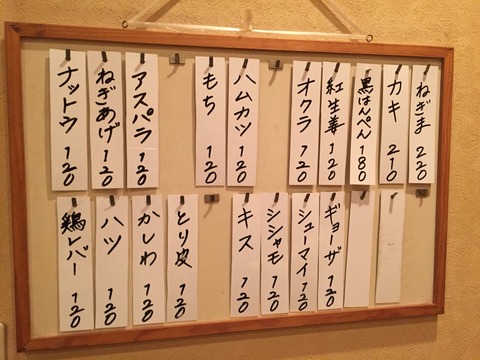 ねぎま 220
カキ 210
黒はんぺん 180
紅生姜 120
オクラ 120
ハムカツ 120
もち 120
アスパラ 120
ねぎあげ 120
ナットウ 120
ギョーザ 120
シューマイ 120
シシャモ 120
キス 120
とり皮 120
かしわ 120
ハツ 120
鶏レバー 120